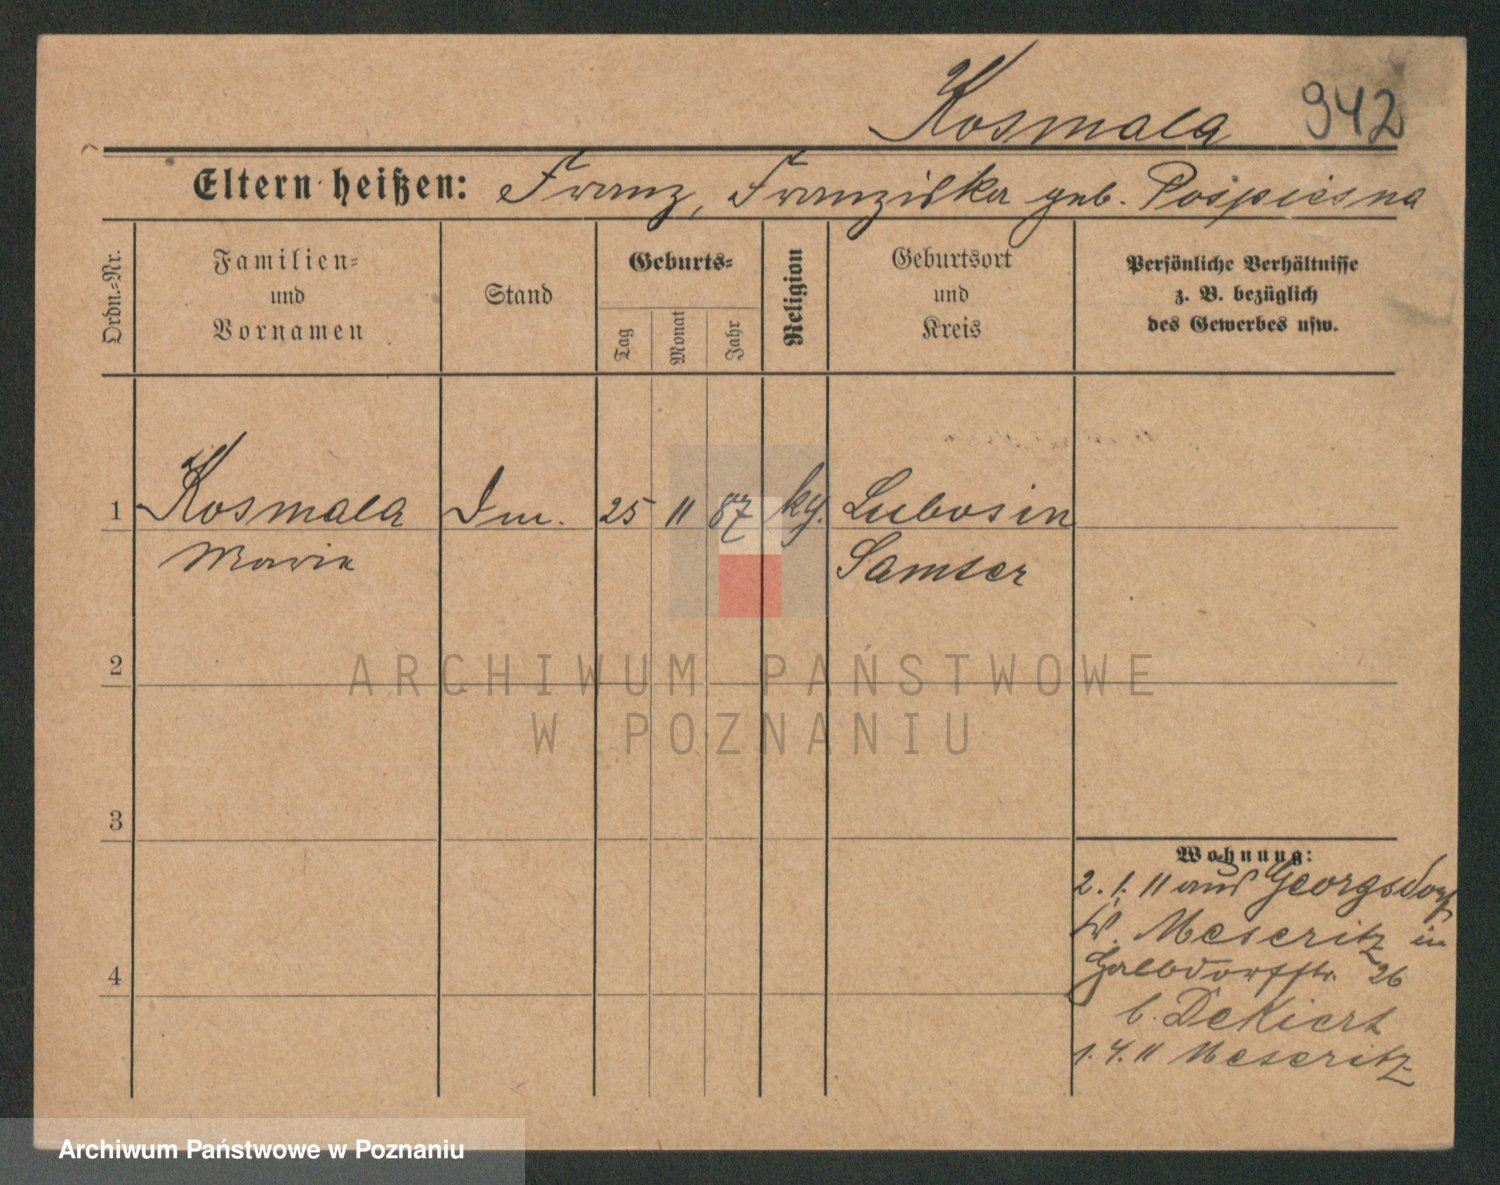 Kosmala 942
Eltern heißen: Franz, Franziska geb. Pospiesna
Ordn.-Nr.
Familien-
und
Vornamen
Stand
Geburts-
Tag
Monat
Jahr
Religion
Geburtsort
und
Kreis
Persönliche Verhältnisse
z. B. bezüglich
des Gewerbes usw.
1 Kosmala 25 11 87 Lubosin
Marie Samter
2
ARCHIWUM PAŃSTWOWE
W POZNANIU
3
Wohnung:
2. 1. 11 aus Georgsdorf
Meseritz in
26
b. Dekiert
4
1. 4. 11 Meseritz
Archiwum Państwowe w Poznaniu